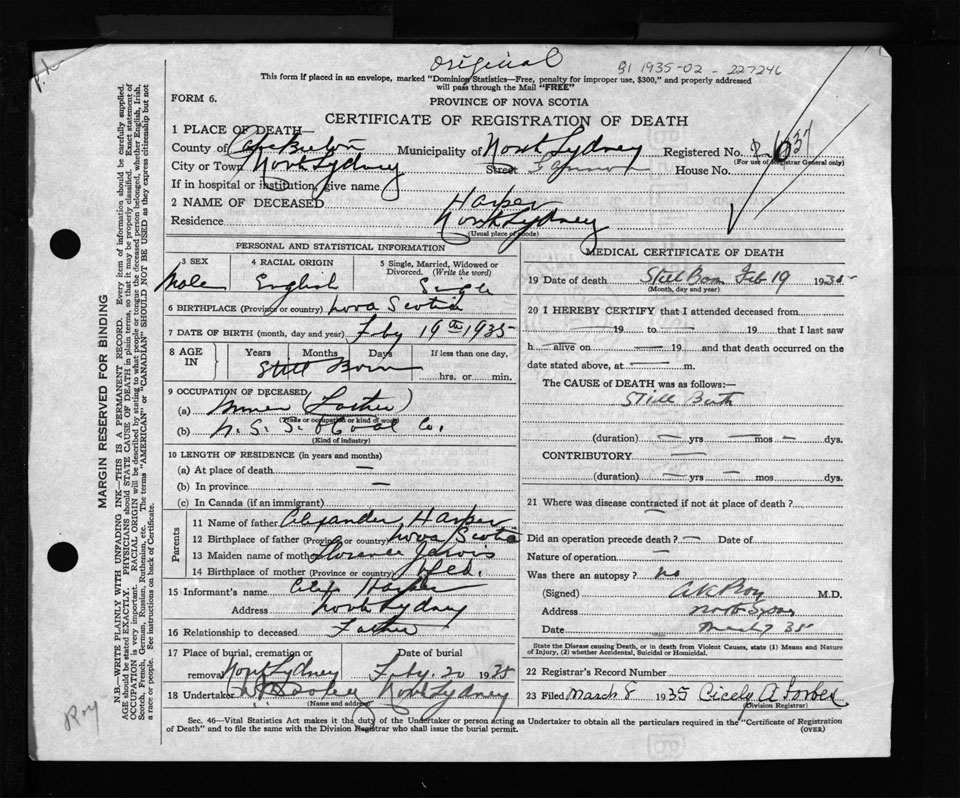 original
B1 1935-02-227246
This form if placed in an envelope, marked "Dominion Statistics—Free, penalty for improper use, $300," and properly addressed
will pass through the Mail "FREE"
FORM 6.
PROVINCE OF NOVA SCOTIA
CERTIFICATE OF REGISTRATION OF DEATH
1 PLACE OF DEATH—
County of Cape Breton Municipality of North Sydney Registered No.
(For use of Registrar General only)
City or Town North Sydney Street House No.
If in hospital or institution, give name
2 NAME OF DECEASED Harper
Residence North Sydney
(Usual place of abode)
PERSONAL AND STATISTICAL INFORMATION
3 SEX 4 RACIAL ORIGIN 5 Single, Married, Widowed or Divorced. (Write the word)
Male English Single
6 BIRTHPLACE (Province or country) Nova Scotia
7 DATE OF BIRTH (month, day and year) Feby 19th 1935
8 AGE IN Years Months Days If less than one day,
Still Born hrs. or min.
9 OCCUPATION OF DECEASED
(a) Miner (Father)
(Trade or occupation or kind of work)
(b) N. S. S. & Coal Co.
(Kind of industry)
10 LENGTH OF RESIDENCE (in years and months)
(a) At place of death —
(b) In province —
(c) In Canada (if an immigrant)
Parents
11 Name of father Alexander Harper
12 Birthplace of father (Province or country) Nova Scotia
13 Maiden name of mother Florence Jarvis
14 Birthplace of mother (Province or country) Nfld.
15 Informant's name Alex Harper
Address North Sydney
16 Relationship to deceased Father
17 Place of burial, cremation or removal Date of burial
North Sydney Feby. 20 1935
18 Undertaker North Sydney
(Name and address)
MEDICAL CERTIFICATE OF DEATH
19 Date of death Still Born Feb 19 1935
(Month, day and year)
20 I HEREBY CERTIFY that I attended deceased from
— 19 to — 19 that I last saw
h— alive on — 19 and that death occurred on the
date stated above, at — m.
The CAUSE of DEATH was as follows:—
Still Birth
(duration) — yrs — mos — dys.
CONTRIBUTORY —
(duration) — yrs — mos dys.
21 Where was disease contracted if not at place of death?
—
Did an operation precede death? — Date of
Nature of operation —
Was there an autopsy? no
(Signed) A K Roy M.D.
Address North Sydney
Date March 7 35
State the Disease causing Death, or in death from Violent Causes, state (1) Means and Nature
of Injury, (2) whether Accidental, Suicidal or Homicidal.
22 Registrar's Record Number
23 Filed March 8 1935 Cicely A. Forbes
(Division Registrar)
Sec. 46—Vital Statistics Act makes it the duty of the Undertaker or person acting as Undertaker to obtain all the particulars required in the "Certificate of Registration
of Death" and to file the same with the Division Registrar who shall issue the burial permit.
(OVER)
MARGIN RESERVED FOR BINDING
N.B.—WRITE PLAINLY WITH UNFADING INK—THIS IS A PERMANENT RECORD. Every item of information should be carefully supplied.
AGE should be stated EXACTLY. PHYSICIANS should STATE CAUSE OF DEATH in plain terms, so that it may be properly classified. Exact statement of
OCCUPATION is very important. RACIAL ORIGIN will be described by stating to what people or tongue the deceased person belonged, whether English, Irish,
Scotch, French, German, Russian, Ruthenian, etc. The terms "AMERICAN" or "CANADIAN" SHOULD NOT BE USED as they express citizenship but not
a race or people. See instructions on back of Certificate.
Roy